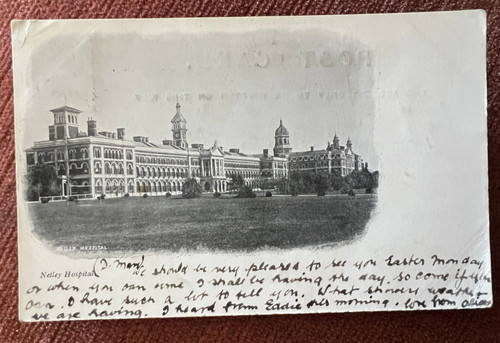 POST CARD
NETLEY HOSPITAL
Netley Hospital (I. Mon)
We should be very pleased to see you Easter Monday
or when you can come I shall be having the day. so come if you
can. I have such a lot to tell you. What showery weather
we are having. I heard from Eddie this morning. love from